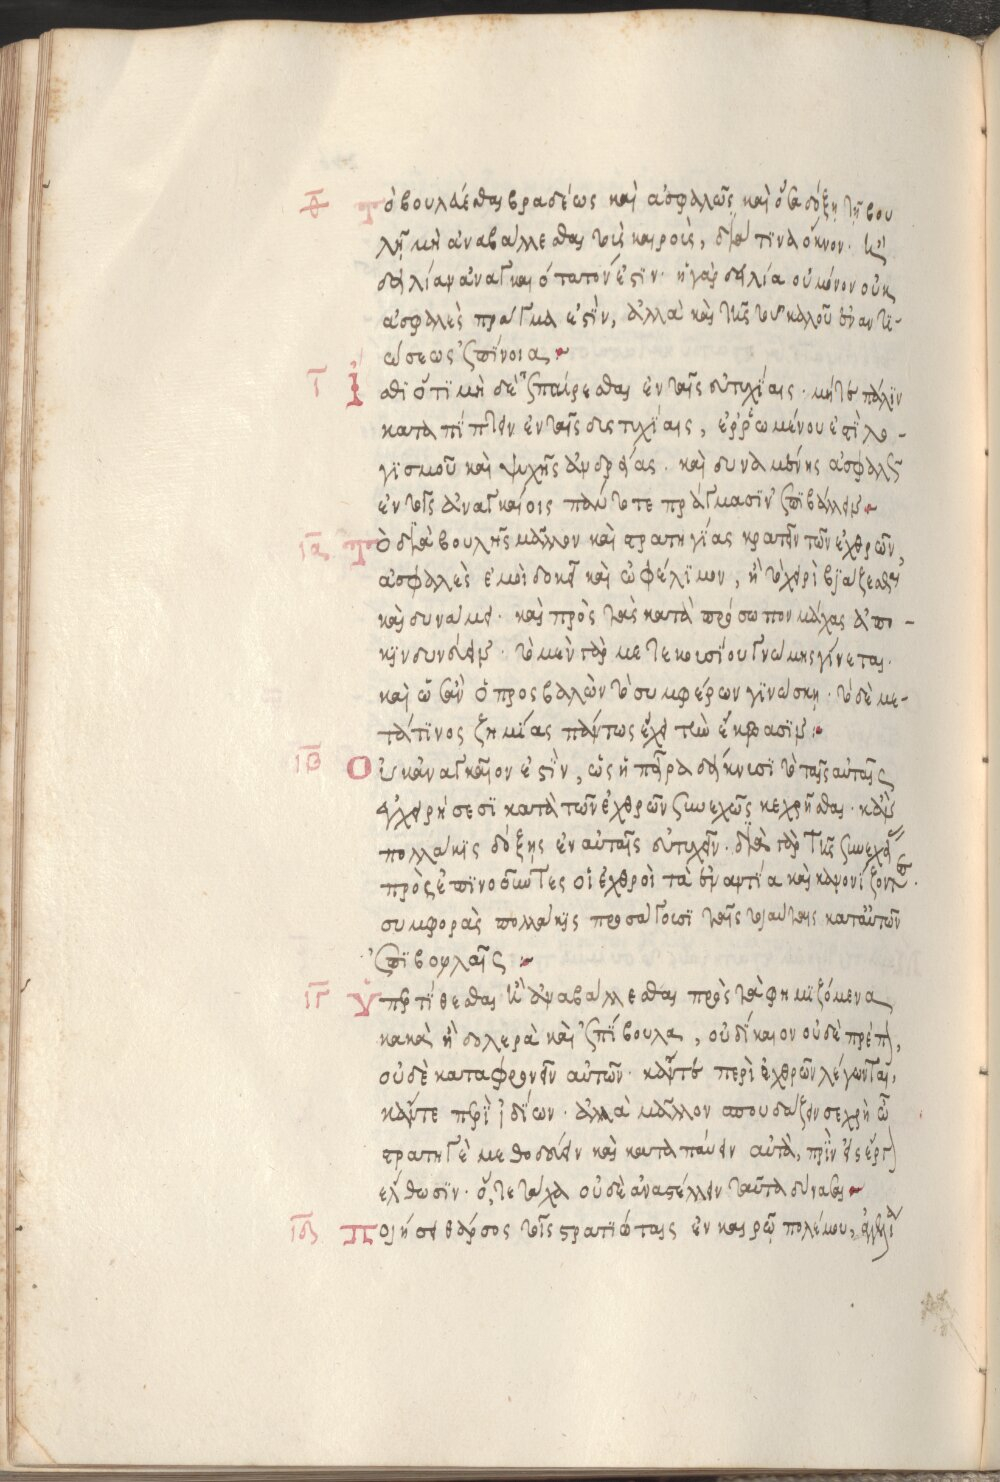 θ Τὸ βουλεύεσθαι βραδέως καὶ ἀσφαλῶς καὶ ὅταν δόξῃ τῇ βου
λῇ μὴ ἀναβάλλεσθαι τοῖς καιροῖς, διά τινα ὄκνον· καὶ
δειλίαν ἀναγκαιότατον ἐστιν· ἡ γὰρ δειλία οὐ μόνον οὐκ
ἀσφαλὲς πρᾶγμα ἐστὶν, ἀλλὰ καὶ τῆς τοῦ καλοῦ ἐναντι-
ώσεως ἐπίνοια
ι Ἴσθι ὅτι μὴ δεῖ ἐπαίρεσθαι ἐν ταῖς εὐτυχίαις· μήτε πάλιν
καταπίπτειν ἐν ταῖς δυστυχίαις, ἐρρωμένου ἐστὶ λο-
γισμοῦ καὶ ψυχῆς ἀνδρείας· καὶ δυναμένης ἀσφαλῶς
ἐν τοῖς ἀναγκαίοις πάντοτε πράγμασιν ἐπιβάλλειν
ια Τὸ διὰ βουλῆς μᾶλλον καὶ στρατηγίας κρατεῖν τῶν ἐχθρῶν,
ἀσφαλὲς ἐμοὶ δοκεῖ καὶ ὠφέλιμον, ἢ τὸ χειρὶ βιάζεσθαι
καὶ δυνάμει· καὶ πρὸς τὰς κατὰ πρόσωπον μάχας ἀπο-
κινδυνεύειν· τὸ μὲν γὰρ μετ ἐκουσίου γνώμης γίνεται·
καὶ ὅταν ὁ προσβαλὼν τὸ συμφέρων γινώσκῃ· τὸ δὲ με-
τά τινος ζημίας πάντως ἔχει τὴν ἔκβασιν
ιβ Οὐκ ἀναγκαῖον ἐστὶν, ὡς ἡ πεῖρα δείκνυσι τὸ ταῖς αὐταῖς
ἐγχειρήσεσι κατὰ τῶν ἐχθρῶν συνεχῶς κεχρῆσθαι· κἂν
πολλάκις δόξῃς ἐν αὐταῖς εὐτυχεῖν· διὰ γὰρ τῆς συνεχείας
προσεπινοοῦντες οἱ ἐχθροὶ τὰ ἐναντία καὶ κανονίζοντες·
συμφορὰς πολλάκις προσάγουσι ταῖς τοιαύταις καταυτῶν
ἐπιβουλαῖς
ιγ Ὑπερτίθεσθαι καὶ ἀναβάλλεσθαι πρὸς τὰ φημιζόμενα
κακὰ ἢ δολερὰ καὶ ἐπίβουλα, οὐ δίκαιον οὐδὲ πρέπει,
οὐδὲ καταφρονεῖν αὐτῶν· κἄντε περὶ ἐχθρῶν λέγωνται,
κἄντε περὶ ἰδίων· ἀλλὰ μᾶλλον σπουδάζειν σε χρὴ ὦ
στρατηγὲ μεθοδεύειν καὶ καταπαύειν αὐτὰ, πρὶν εἰς ἔργον
ἔλθωσιν· ὅτε τάχα οὐδὲ ἀναστέλλειν ταῦτα δύνασαι
ιδ Ποιήσει θάρσος τοῖς στρατιώταις ἐν καιρῷ πολέμου,